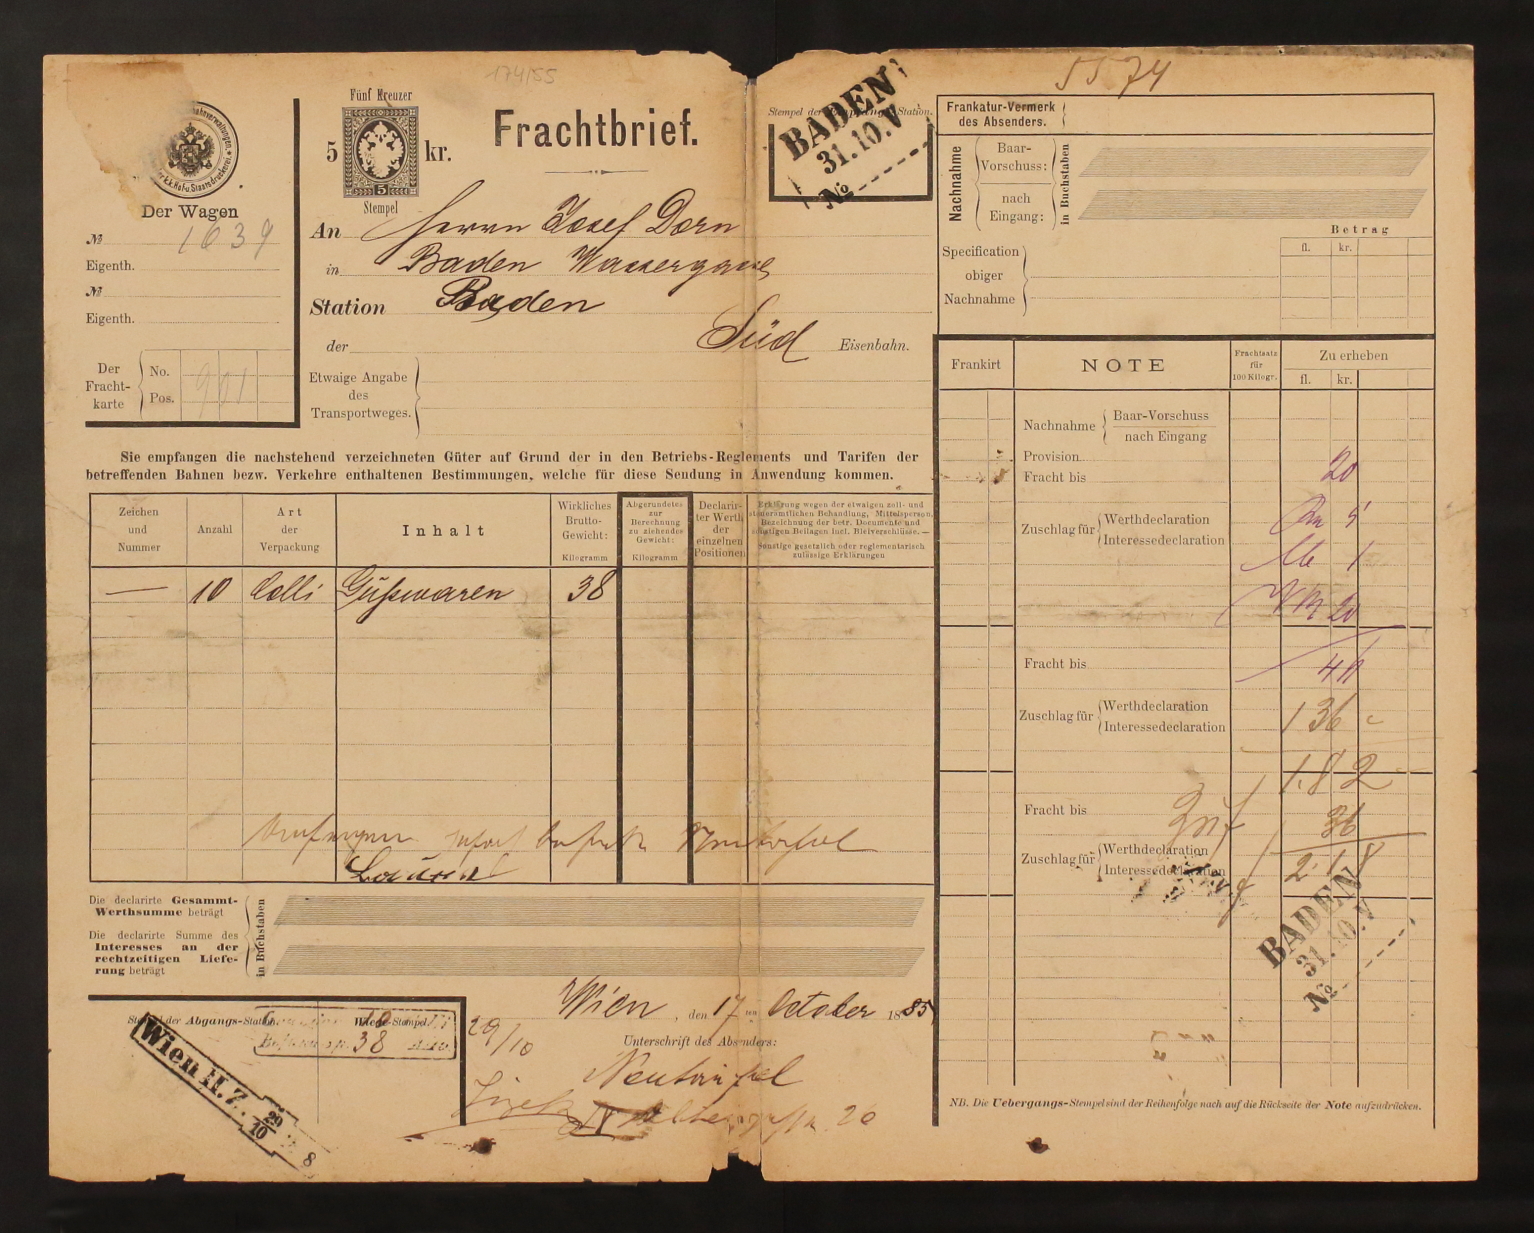 174/55
5574
Fünf Kreuzer
5 kr.
5
Stempel
Frachtbrief.
Stempel der Empfangs-Station.
BADEN
31.10.V
№
k.k. Hof-u. Staatsdruckerei.
Der Wagen
№ 1639
Eigenth.
№
Eigenth.
Der Frachtkarte
No.
Pos.
901
An Herrn Josef Dorn
in Baden Wassergasse
Station Baden
der Süd Eisenbahn.
Etwaige Angabe
des
Transportweges.
Sie empfangen die nachstehend verzeichneten Güter auf Grund der in den Betriebs-Reglements und Tarifen der
betreffenden Bahnen bezw. Verkehre enthaltenen Bestimmungen, welche für diese Sendung in Anwendung kommen.
Zeichen und Nummer
Anzahl
Art der Verpackung
Inhalt
Wirkliches Brutto-Gewicht: Kilogramm
Abgerundetes zur Berechnung zu ziehendes Gewicht: Kilogramm
Declarirter Werth der einzelnen Positionen
Erklärung wegen der etwaigen zoll- und
steueramtlichen Behandlung, Mittelsperson,
Bezeichnung der betr. Documente und
sonstigen Beilagen incl. Bleiverschlüsse. —
Sonstige gesetzlich oder reglementarisch
zulässige Erklärungen
— 10 Colli Gußwaren 38
Die declarirte Gesammt-
Werthsumme beträgt
Die declarirte Summe des
Interesses an der
rechtzeitigen Liefe-
rung beträgt
in Buchstaben
Stempel der Abgangs-Station.
Wiege-Stempel
38
Wien H.Z.
29
10
8
29/10
Wien, den 17ten October 1885
Unterschrift des Absenders:
Frankatur-Vermerk
des Absenders.
Nachnahme
Baar-
Vorschuss:
nach
Eingang:
in Buchstaben
Betrag
fl. kr.
Specification
obiger
Nachnahme
Frankirt
NOTE
Frachtsatz für 100 Kilogr.
Zu erheben
fl. kr.
Nachnahme
Baar-Vorschuss
nach Eingang
Provision
Fracht bis 20
Zuschlag für
Werthdeclaration 5
Interessedeclaration
1
20
Fracht bis 46
Zuschlag für
Werthdeclaration
Interessedeclaration
1 36
1.82
Fracht bis 36
Zuschlag für
Werthdeclaration
Interessedeclaration
2 18
BADEN
31.10.V
№
NB. Die Uebergangs-Stempel sind der Reihenfolge nach auf die Rückseite der Note aufzudrücken.